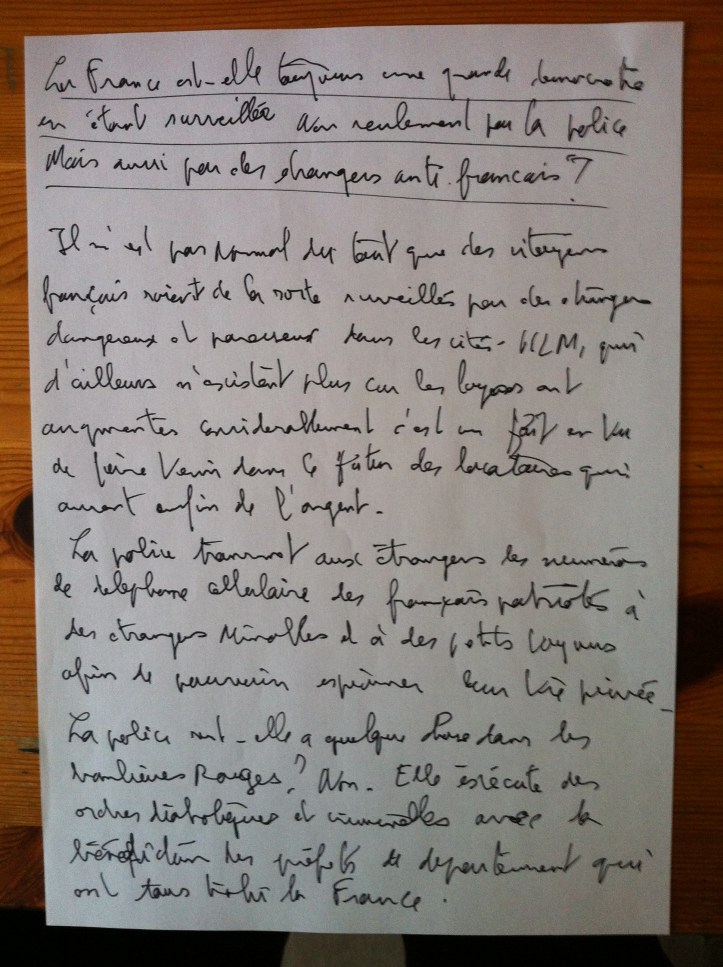 La France est-elle toujours une grande democratie
en étant surveillée Non seulement par la police
Mais aussi par des étrangers anti français ?
Il n'est pas normal du tout que des citoyens
français soient de la sorte surveillés par des étrangers
dangereux et paresseux dans les cités-HLM, qui
d'ailleurs n'existent plus car les loyers ont
augmentés considerablement c'est un fait en vu
de faire venir dans ce des locataires qui
auront enfin de l'argent.
La police transmet aux étrangers les numeros
de telephone cellulaire des français patriotes à
des étrangers et à des petits voyous
afin de pouvoir espionner leur vie privée_
La police sert-elle a quelque chose dans les
banlieues Rouges ? Non. Elle exécute des
ordres diaboliques et criminelles avec la
des préfets de departement qui
ont tous trahi la France.